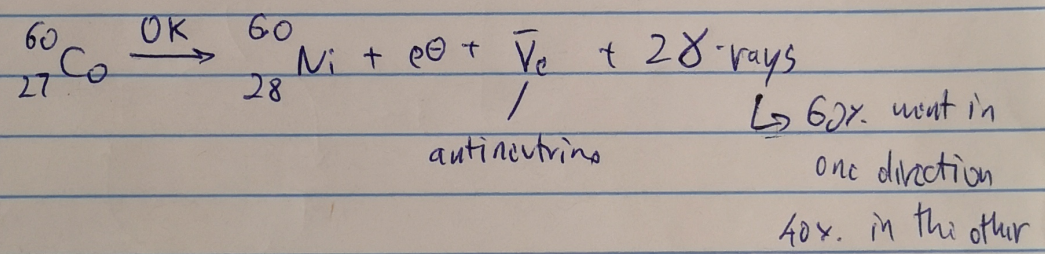 ⁶⁰₂₇Co 0K → ⁶⁰₂₈Ni + e⊖ + ν̄e + 2γ-rays
antineutrino
↳ 60% went in
one direction
40%. in the other